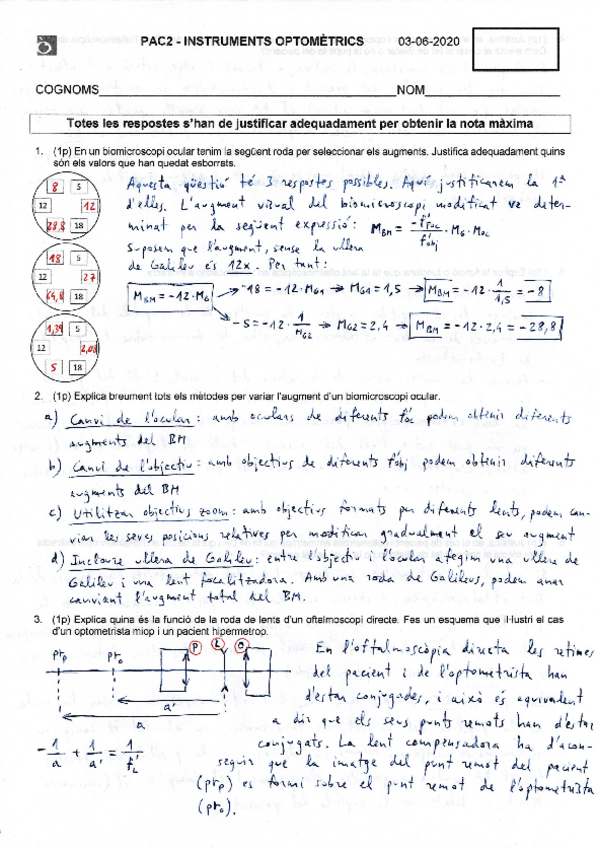 PAC2 - INSTRUMENTS OPTOMÈTRICS 03-06-2020
COGNOMS NOM
Totes les respostes s'han de justificar adequadament per obtenir la nota màxima
1. (1p) En un biomicroscopi ocular tenim la següent roda per seleccionar els augments. Justifica adequadament quins
són els valors que han quedat esborrats.
8 5
12 12
28,8 18
18 5
12 27
64,8 18
1,39 5
12 2,08
5 18
Aquesta qüestió té 3 respostes possibles. Aquí justificarem la 1ª
d'elles. L'augment visual del biomicroscopi modificat ve deter-
minat per la següent expressió: M_BM = -f'_foc / f'_obj · M_G · M_oc
Suposem que l'augment, sense la ullera
de Galileu és 12x. Per tant:
M_BM = -12·M_G → -18 = -12·M_G1 → M_G1 = 1,5 → M_BM = -12 · 1/1,5 = -8
→ -5 = -12 · 1/M_G2 → M_G2 = 2,4 → M_BM = -12·2,4 = -28,8
2. (1p) Explica breument tots els mètodes per variar l'augment d'un biomicroscopi ocular.
a) Canvi de l'ocular: amb oculars de diferents f'oc podem obtenir diferents
augments del BM
b) Canvi de l'objectiu: amb objectius de diferents f'obj podem obtenir diferents
augments del BM
c) Utilitzar objectius zoom: amb objectius formats per diferents lents, podem can-
viar les seves posicions relatives per modificar gradualment el seu augment
d) Incloure ullera de Galileu: entre l'objectiu i l'ocular afegim una ullera de
Galileu i una lent focalitzadora. Amb una roda de Galileus, podem anar
canviant l'augment total del BM.
3. (1p) Explica quina és la funció de la roda de lents d'un oftalmoscopi directe. Fes un esquema que il·lustri el cas
d'un optometrista miop i un pacient hipermetrop.
pr_p pr_o P L O
a'
a
-1/a + 1/a' = 1/f'_L
En l'oftalmoscòpia directa les retines
del pacient i de l'optometrista han
d'estar conjugades, i això és equivalent
a dir que els seus punts remots han d'estar
conjugats. La lent compensadora ha d'acon-
seguir que la imatge del punt remot del pacient
(pr_p) es formi sobre el punt remot de l'optometrista
(pr_o).